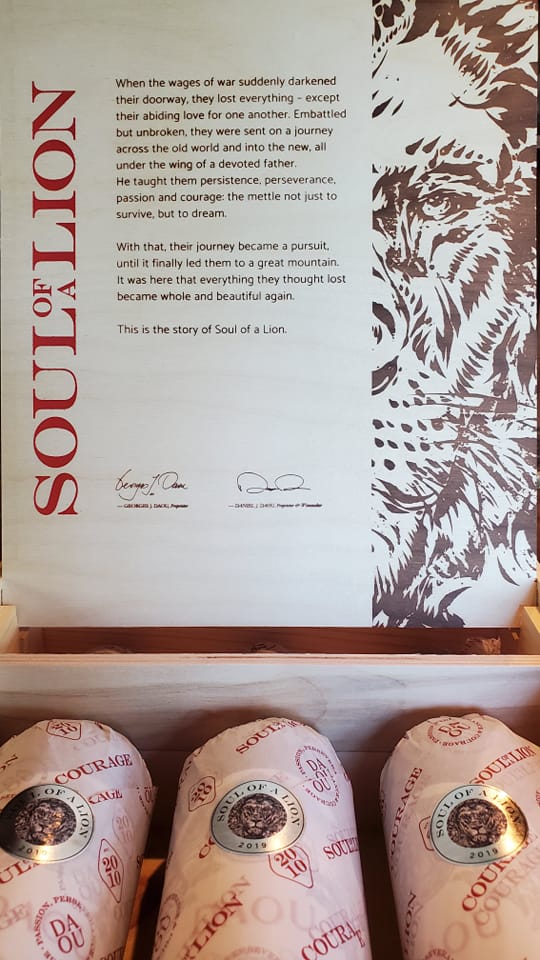 SOUL OF A LION
When the wages of war suddenly darkened
their doorway, they lost everything – except
their abiding love for one another. Embattled
but unbroken, they were sent on a journey
across the old world and into the new, all
under the wing of a devoted father.
He taught them persistence, perseverance,
passion and courage: the mettle not just to
survive, but to dream.
With that, their journey became a pursuit,
until it finally led them to a great mountain.
It was here that everything they thought lost
became whole and beautiful again.
This is the story of Soul of a Lion.
— GEORGES J. DAOU, Proprietor
— DANIEL J. DAOU, Proprietor & Winemaker
COURAGE
SOUL OF A LION
2019
2010
PASSION, PERSE
DA
OU
SOUL
DA
OU
COURAGE
SOUL OF A LION
2019
2010
SOUL
LION
COURA
COURAGE
SOUL
LION
SOUL OF A LION
2019
COUR
COURAGE
DA
OU